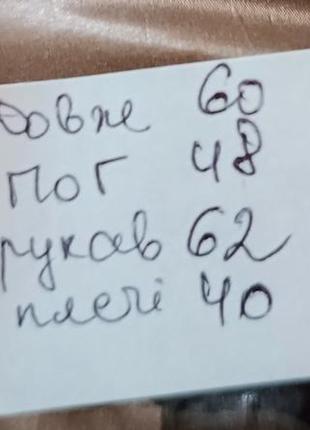 довж 60
ПОГ 48
рукав 62
плечі 40